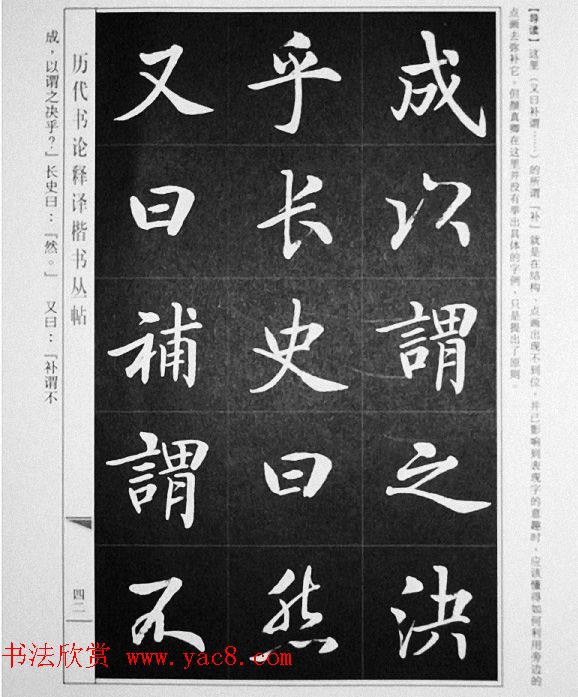 【导读】这里（又曰补谓……）的所谓『补』就是在结构、点画出现不到位，并已影响到表现字的意趣时，应该懂得如何利用旁边的
点画去弥补它。但颜真卿在这里并没有举出具体的字例，只是提出了原则。
成以謂之決
乎长史曰然
又曰補謂不
历代书论释译楷书丛帖
四二
成，以谓之决乎？』长史曰：『然。』 又曰：『补谓不
书法欣赏 www.yac8.com